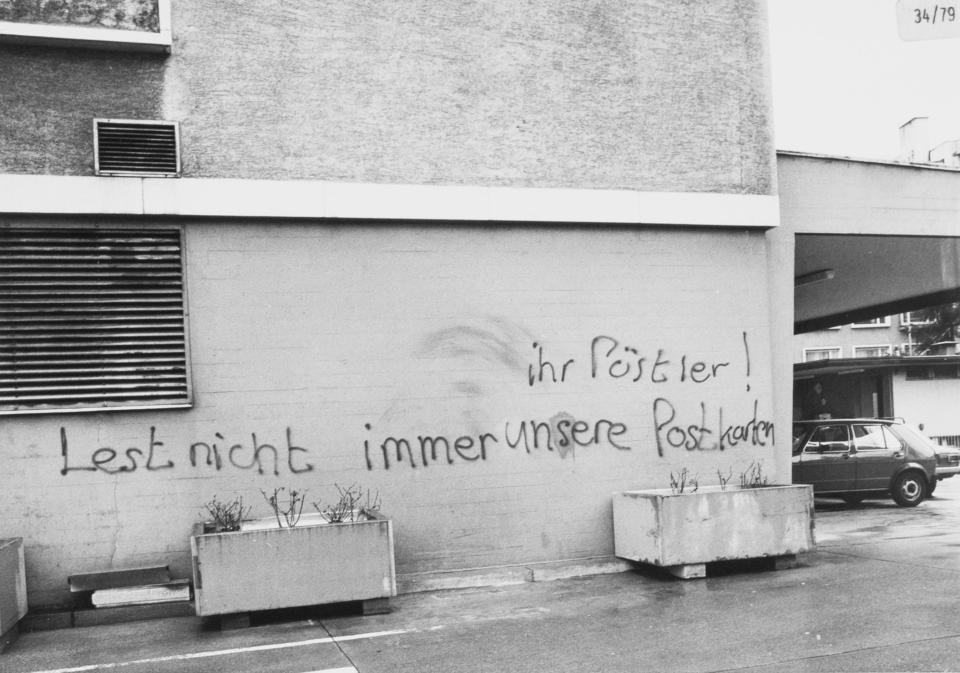 34/79
ihr Pöstler!
Lest nicht immer unsere Postkarten